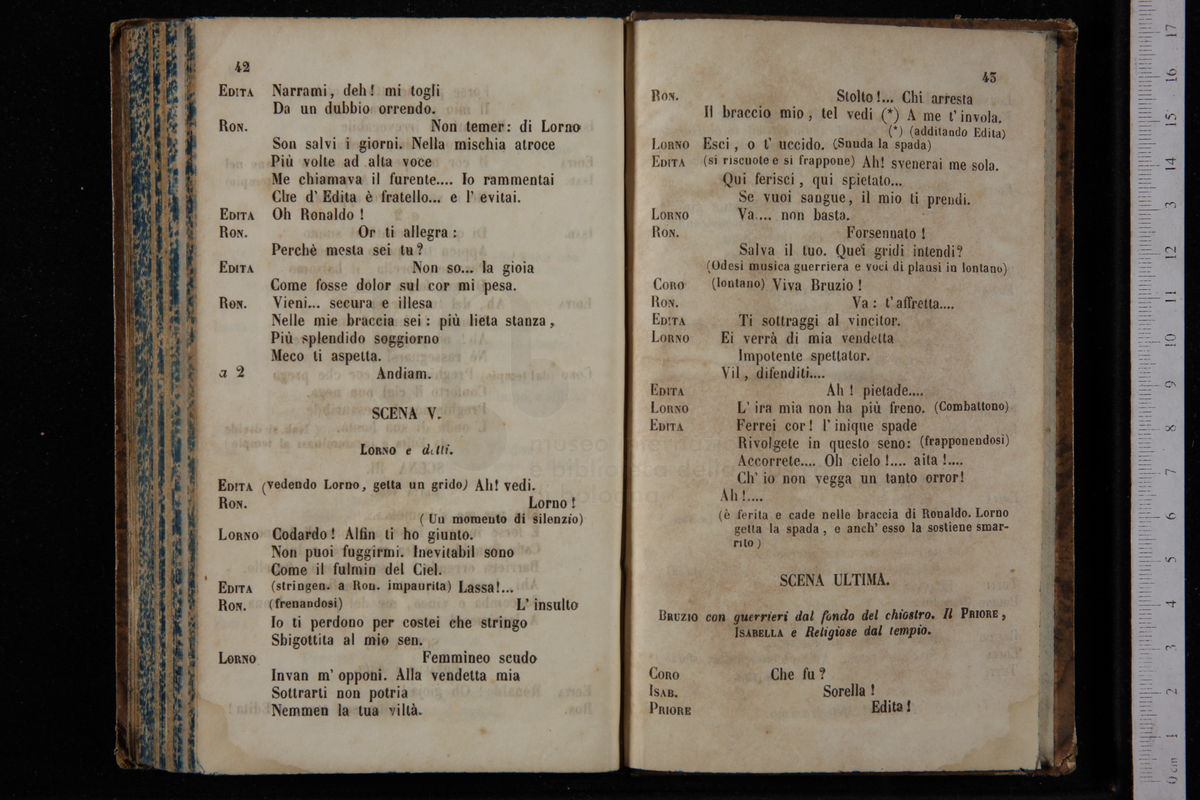 42
EDITA Narrami, deh! mi togli
Da un dubbio orrendo.
RON. Non temer: di Lorno
Son salvi i giorni. Nella mischia atroce
Più volte ad alta voce
Me chiamava il furente.... Io rammentai
Che d' Edita è fratello... e l' evitai.
EDITA Oh Ronaldo!
RON. Or ti allegra:
Perchè mesta sei tu?
EDITA Non so... la gioia
Come fosse dolor sul cor mi pesa.
RON. Vieni... secura e illesa
Nelle mie braccia sei: più lieta stanza,
Più splendido soggiorno
Meco ti aspetta.
a 2 Andiam.
SCENA V.
LORNO e detti.
EDITA (vedendo Lorno, getta un grido) Ah! vedi.
RON. Lorno!
(Un momento di silenzio)
LORNO Codardo! Alfin ti ho giunto.
Non puoi fuggirmi. Inevitabil sono
Come il fulmin del Ciel.
EDITA (stringen. a Ron. impaurita) Lassa!...
RON. (frenandosi) L' insulto
Io ti perdono per costei che stringo
Sbigottita al mio sen.
LORNO Femmineo scudo
Invan m' opponi. Alla vendetta mia
Sottrarti non potria
Nemmen la tua viltà.
43
RON. Stolto!... Chi arresta
Il braccio mio, tel vedi (*) A me t' invola.
(*) (additando Edita)
LORNO Esci, o t' uccido. (Snuda la spada)
EDITA (si riscuote e si frappone) Ah! svenerai me sola.
Qui ferisci, qui spietato...
Se vuoi sangue, il mio ti prendi.
LORNO Va.... non basta.
RON. Forsennato!
Salva il tuo. Quei gridi intendi?
(Odesi musica guerriera e voci di plausi in lontano)
CORO (lontano) Viva Bruzio!
RON. Va: t' affretta....
EDITA Ti sottraggi al vincitor.
LORNO Ei verrà di mia vendetta
Impotente spettator.
Vil, difenditi....
EDITA Ah! pietade....
LORNO L' ira mia non ha più freno. (Combattono)
EDITA Ferrei cor! l' inique spade
Rivolgete in questo seno: (frapponendosi)
Accorrete.... Oh cielo!.... aita!....
Ch' io non vegga un tanto orror!
Ah!....
(è ferita e cade nelle braccia di Ronaldo. Lorno
getta la spada, e anch' esso la sostiene smar-
rito)
SCENA ULTIMA.
BRUZIO con guerrieri dal fondo del chiostro. Il PRIORE,
ISABELLA e Religiose dal tempio.
CORO Che fu?
ISAB. Sorella!
PRIORE Edita!